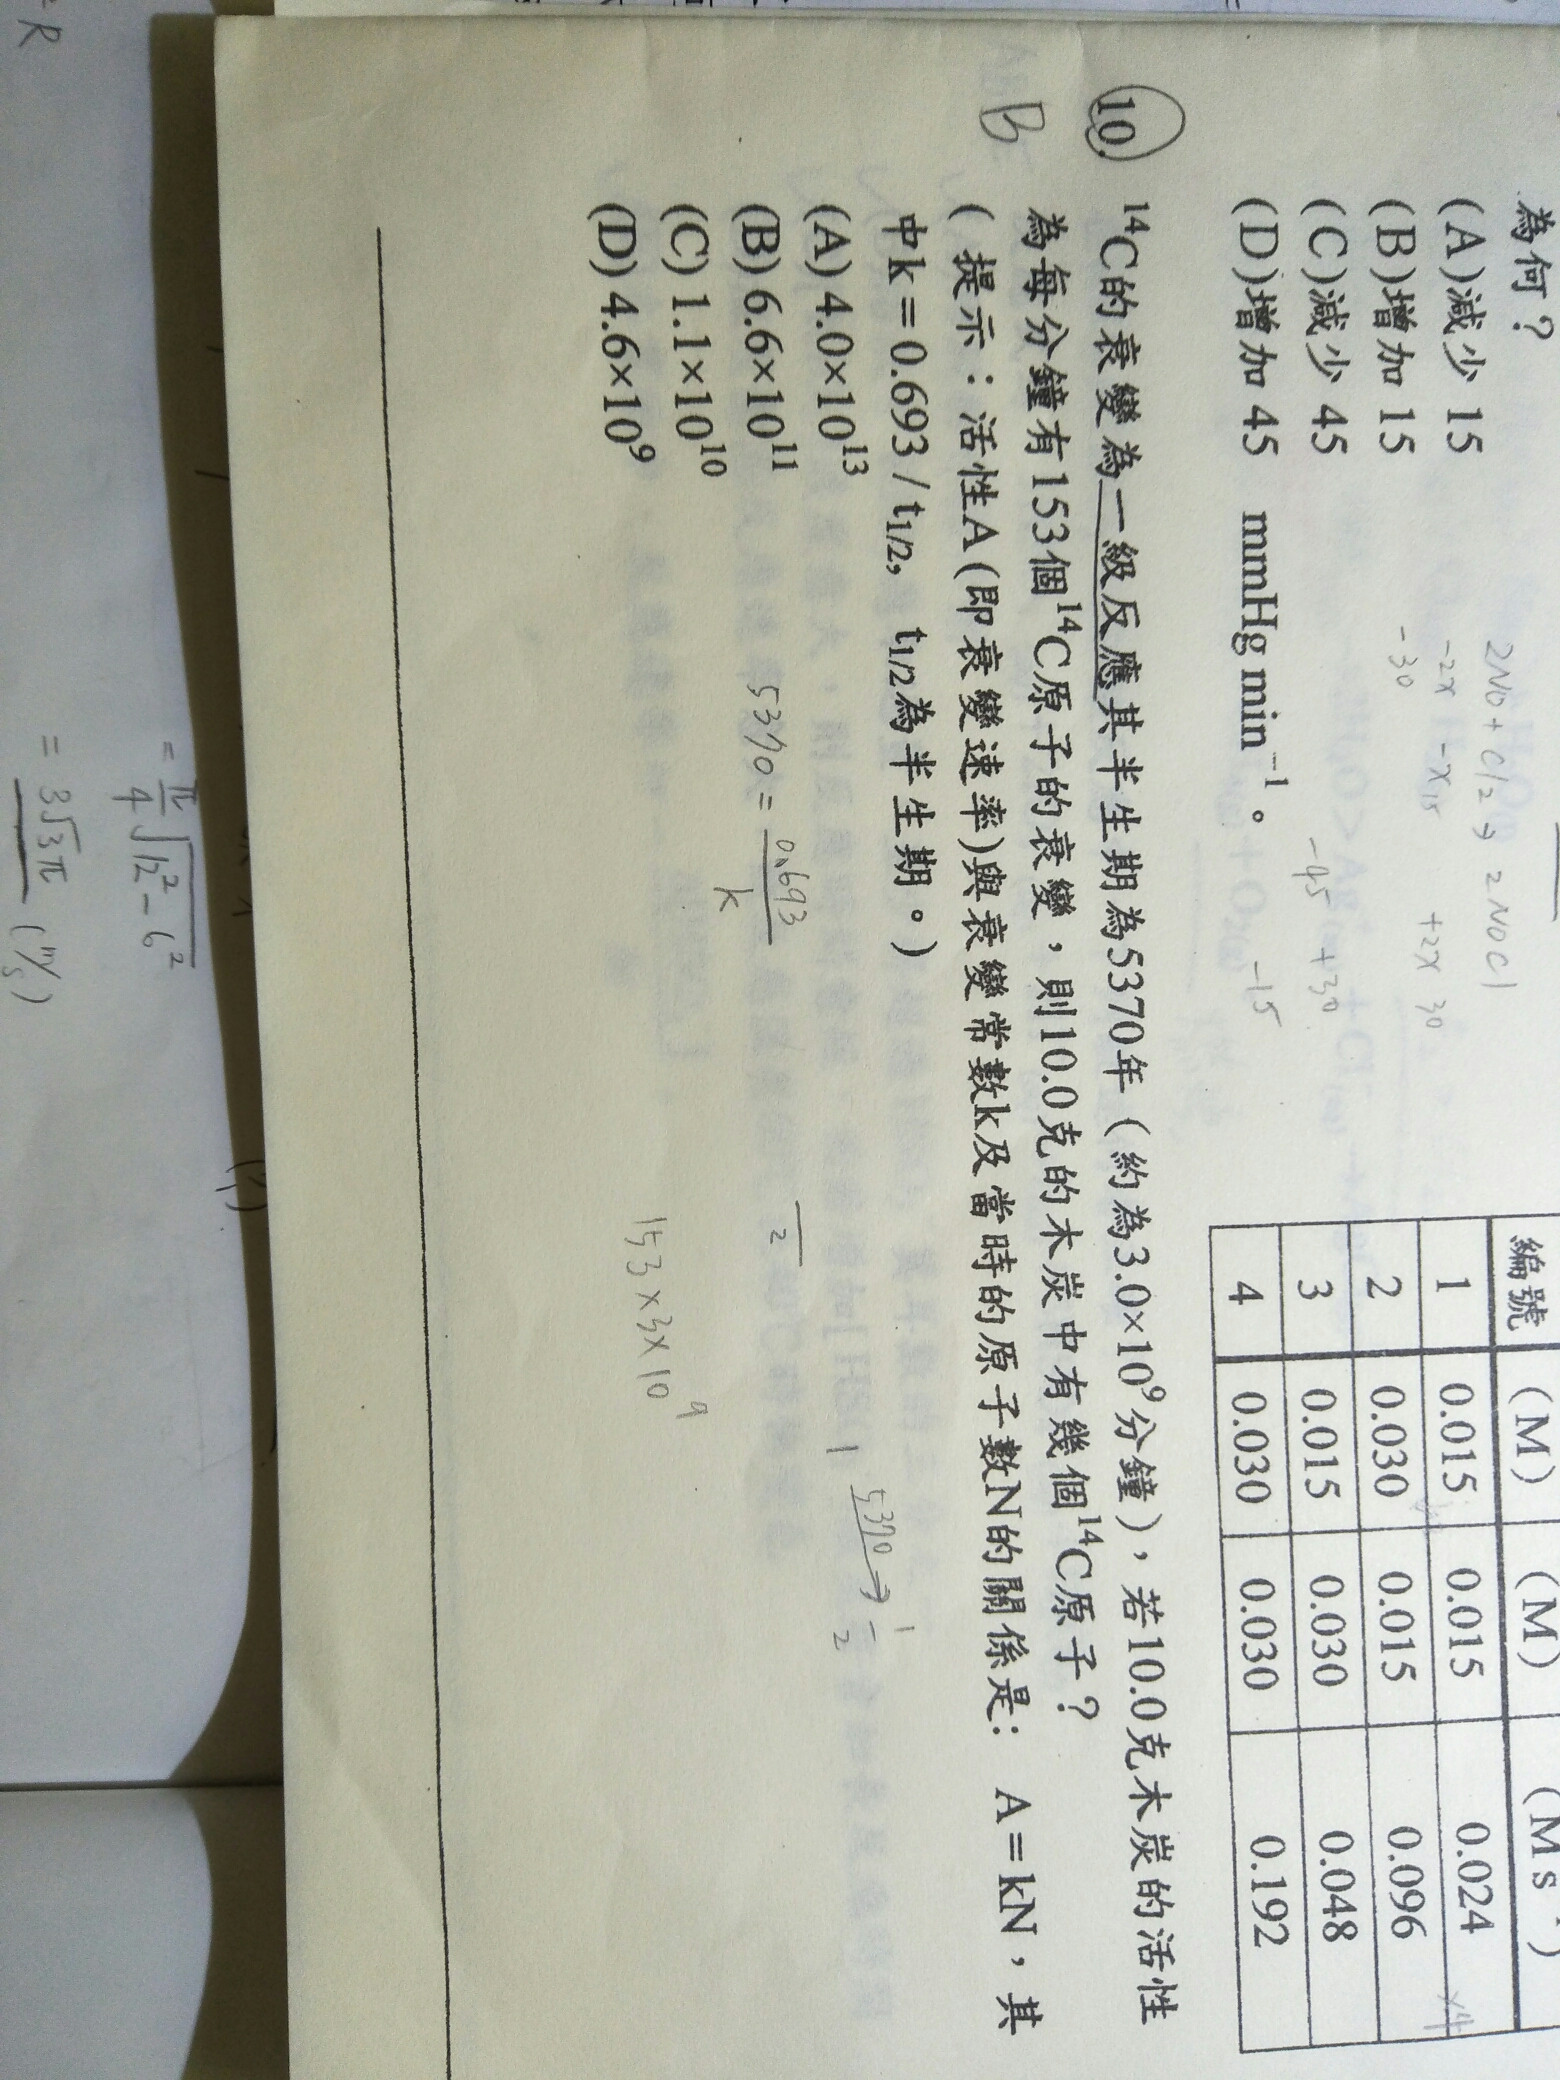 為何？
(A)減少 15
(B)增加 15
(C)減少 45
(D)增加 45 mmHg min⁻¹。
2NO + Cl2 → 2NOCl
-2x -x 15 +2x 30
-30
-45 +30
-15
編號 (M) (M) (M s⁻¹)
1 0.015 0.015 0.024
2 0.030 0.015 0.096
3 0.015 0.030 0.048
4 0.030 0.030 0.192
×4
10.
B
¹⁴C的衰變為一級反應其半生期為5370年（約為3.0×10⁹分鐘），若10.0克木炭的活性
為每分鐘有153個¹⁴C原子的衰變，則10.0克的木炭中有幾個¹⁴C原子？
( 提示：活性A (即衰變速率)與衰變常數k及當時的原子數N的關係是： A＝kN，其
中k＝0.693 / t1/2, t1/2為半生期。)
(A) 4.0×10¹³
(B) 6.6×10¹¹
(C) 1.1×10¹⁰
(D) 4.6×10⁹
5370 = 0.693/k
1 5370→ 1/2
153×3×10⁹
= π/4 √12²-6²
= 3√3π (m/s)
R